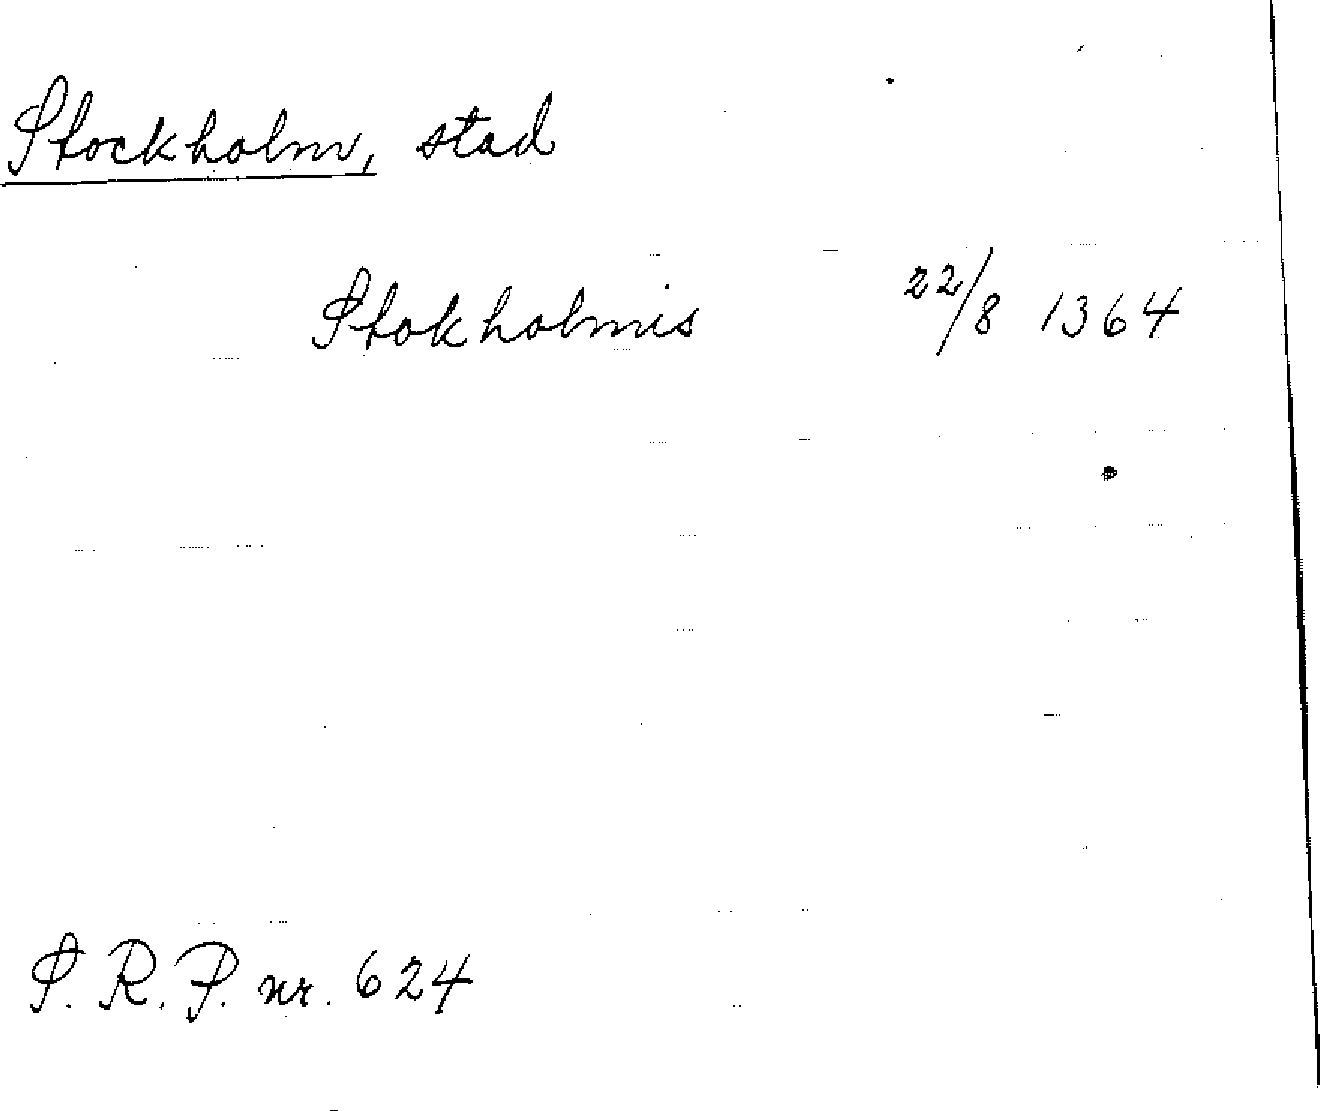 Stockholm, stad
Stokholmis 22/8 1364
S. R. P. nr. 624